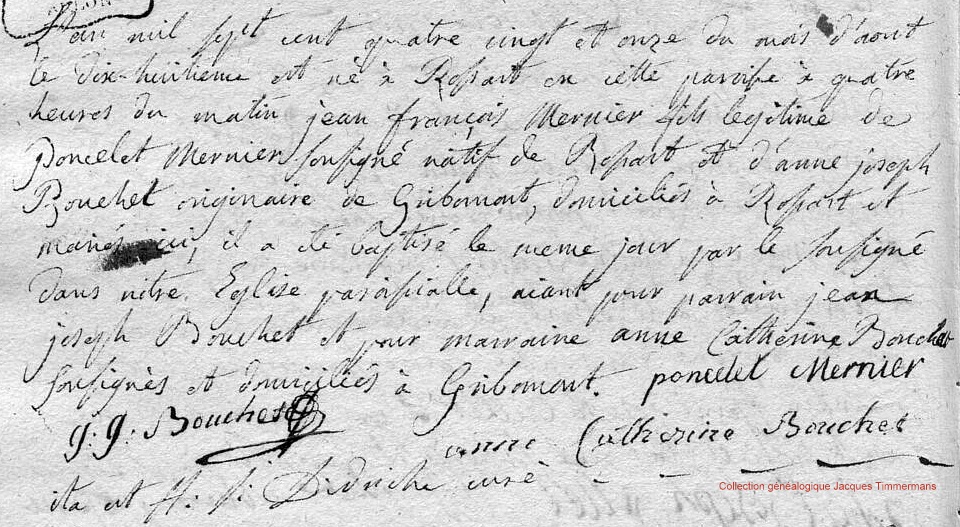 L'an mil sept cent quatre vingt et onze du mois d'aout
le dix-huitieme est né à Rossart en cette paroisse à quatre
heures du matin jean françois Mernier fils legitime de
Poncelet Mernier soussigné natif de Rossart et d'anne joseph
Bouchet originaire de Gribomont, domiciliés à Rossart et
mariés ici, il a été baptisé le meme jour par le soussigné
dans nôtre Eglise paroissialle, aiant pour parrain jean
joseph Bouchet et pour marraine anne Catherine Bouchet
soussignés et domiciliés à Gribomont. poncelet Mernier
g: g: Bouchet
anne Catherine Bouchet
ita est Didriche curé
Collection généalogique Jacques Timmermans